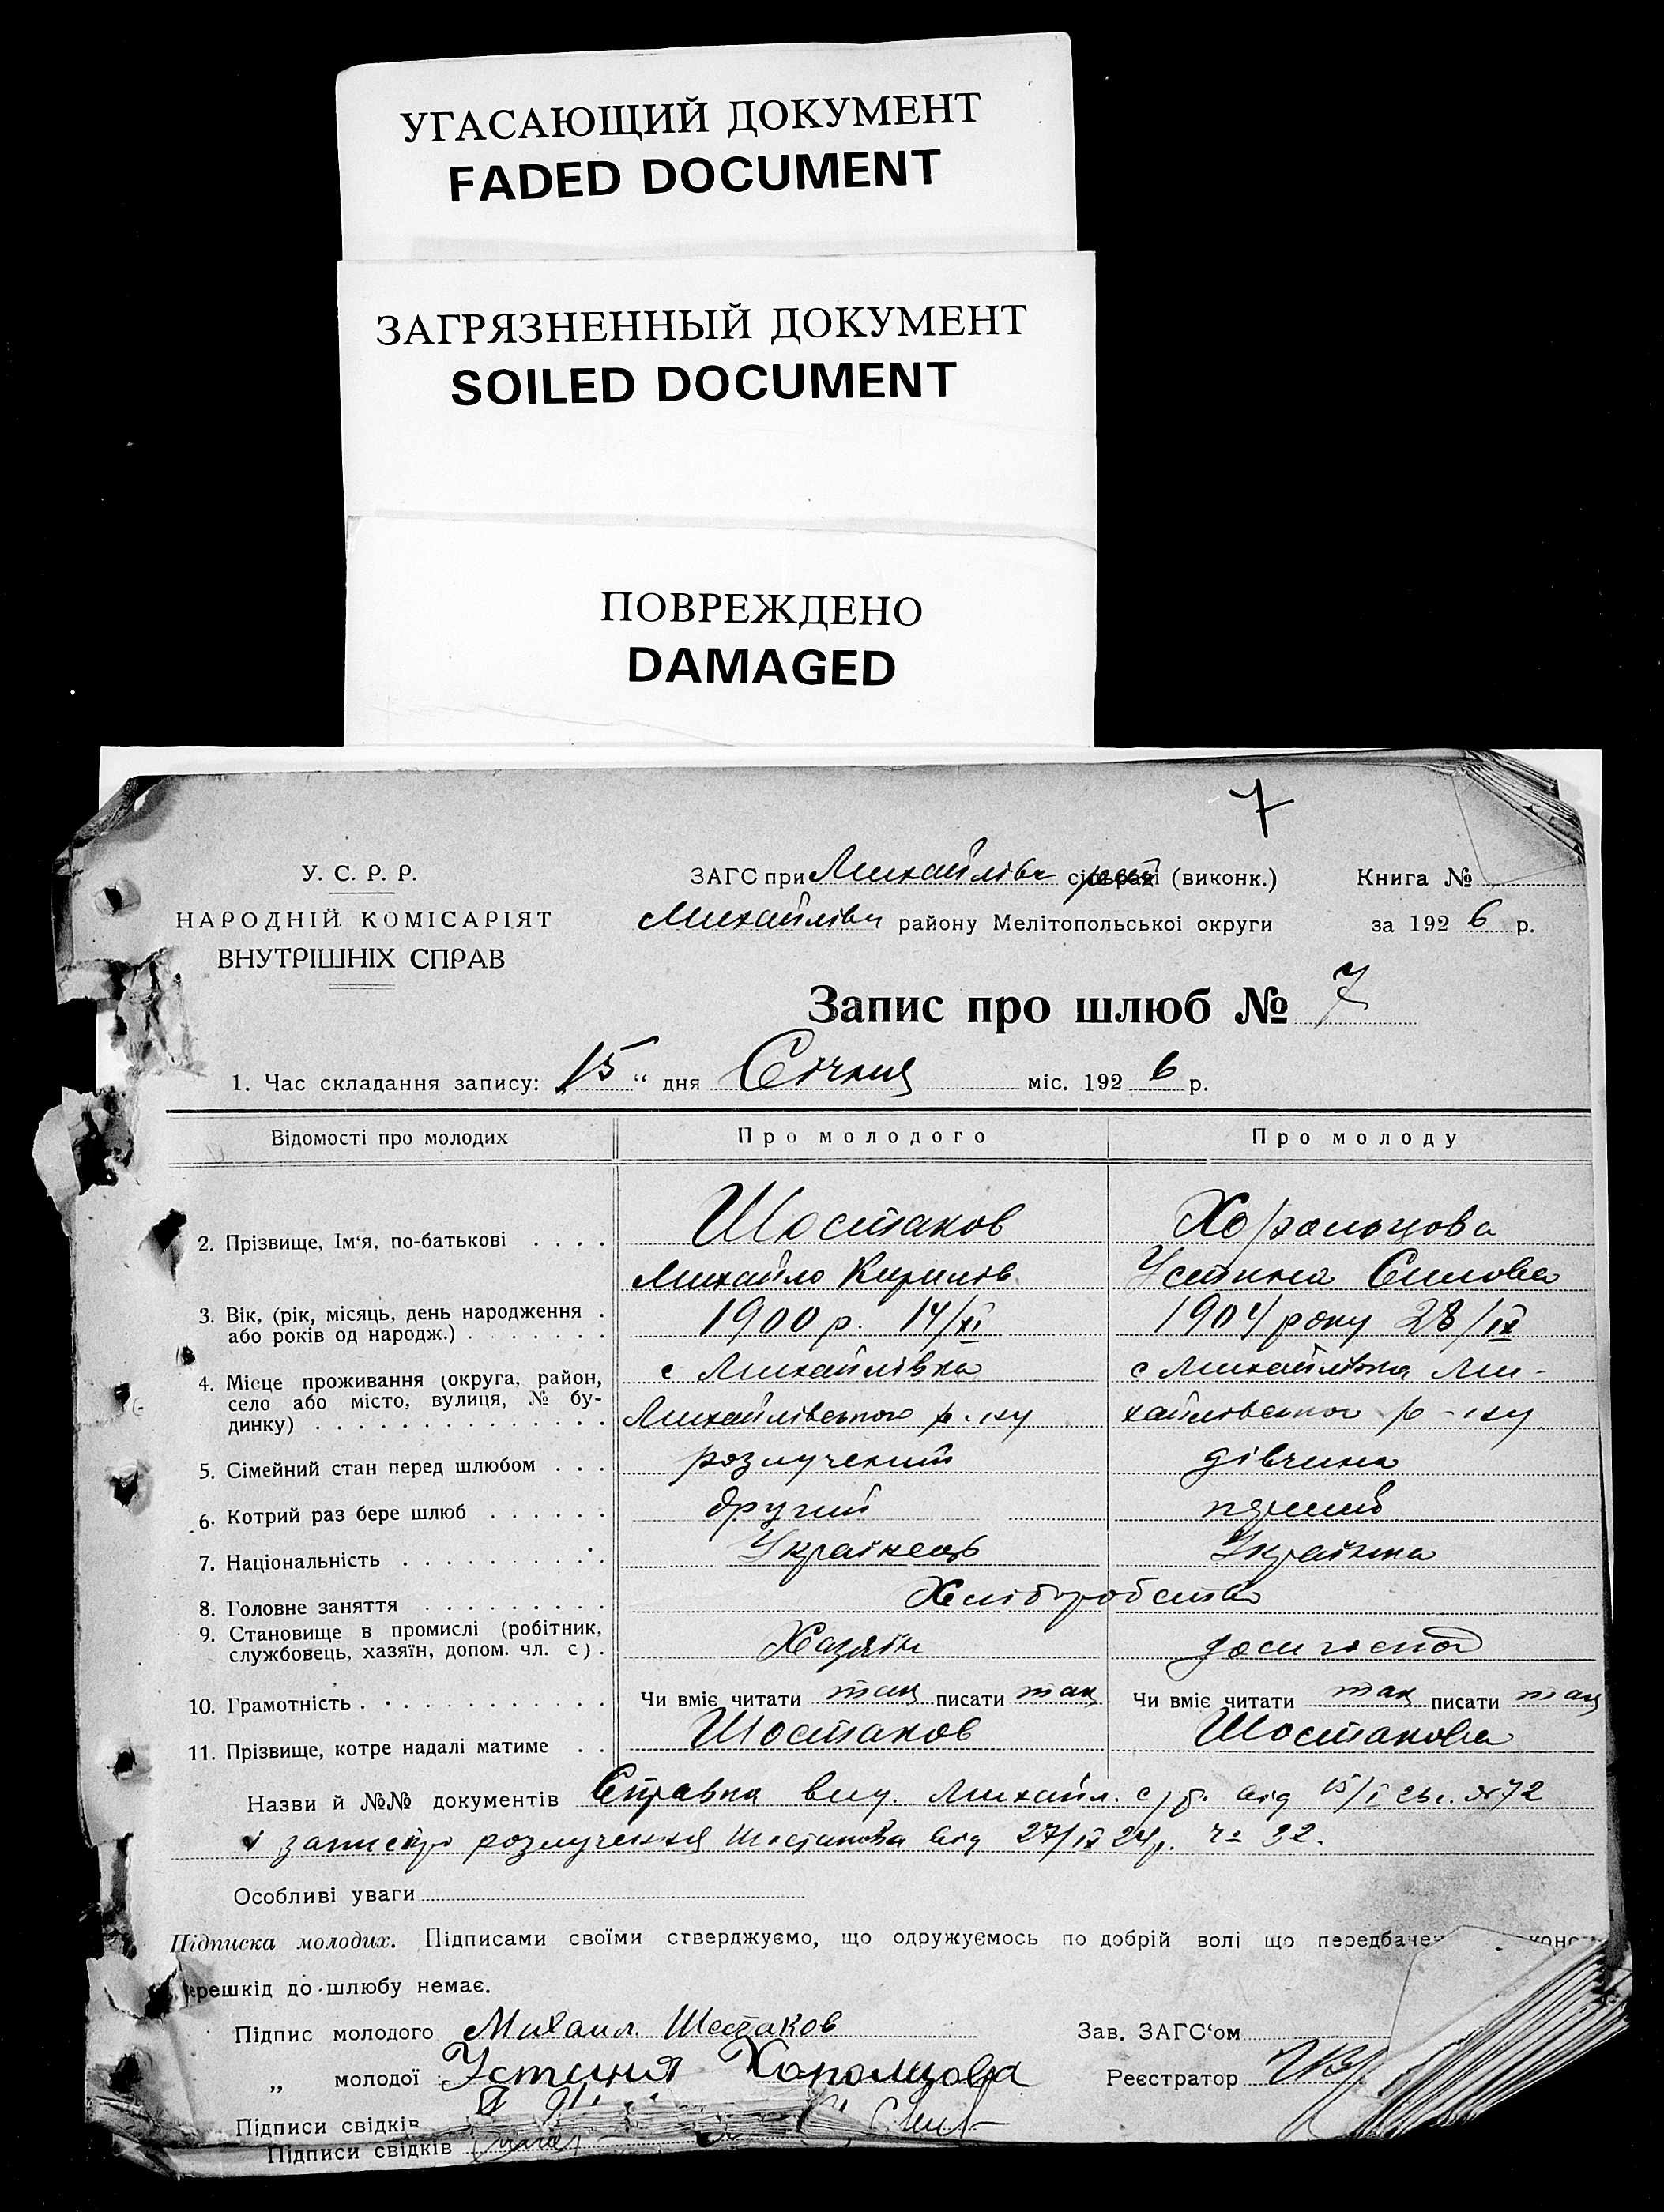 УГАСАЮЩИЙ ДОКУМЕНТ
FADED DOCUMENT
ЗАГРЯЗНЕННЫЙ ДОКУМЕНТ
SOILED DOCUMENT
ПОВРЕЖДЕНО
DAMAGED
7
У. С. Р. Р.
НАРОДНІЙ КОМІСАРІЯТ
ВНУТРІШНІХ СПРАВ
ЗАГС при Михайлівс сільраді (виконк.)
Михайлівс району Мелітопольської округи
Книга №
за 1926 р.
Запис про шлюб № 7
1. Час складання запису: „15“ дня Січня міс. 1926 р.
Відомості про молодих Про молодого Про молоду
2. Прізвище, Ім‘я, по-батькові Шостаков Хорольцова
Михайло Кирилов Устина Силова
3. Вік, (рік, місяць, день народження 1900 р. 14/XI 1904 року 28/IX
або років од народж.)
4. Місце проживання (округа, район, с Михайлівка с Михайлівка Ми-
село або місто, вулиця, № бу- Михайлівського р-ну хайлівського р-ну
динку)
5. Сімейний стан перед шлюбом розлучений дівчина
6. Котрий раз бере шлюб другий перший
7. Національність Українець Українка
8. Головне заняття Хліборобство
9. Становище в промислі (робітник, Хазяїн
службовець, хазяїн, допом. чл. с)
10. Грамотність Чи вміє читати так писати так Чи вміє читати так писати так
11. Прізвище, котре надалі матиме Шостаков Шостакова
Назви й №№ документів Справка Михайл. с/р. від 15/I №72
і запис про розлучення Шостакова від 27/IX 24р. чо 32.
Особливі уваги
Підписка молодих. Підписами своїми стверджуємо, що одружуємось по добрій волі що передбачен
ерешкід до шлюбу немає.
Підпис молодого Михаил Шостаков Зав. ЗАГС‘ом
„ молодої Устиния Хоролцова Реєстратор
Підписи свідків
Підписи свідків